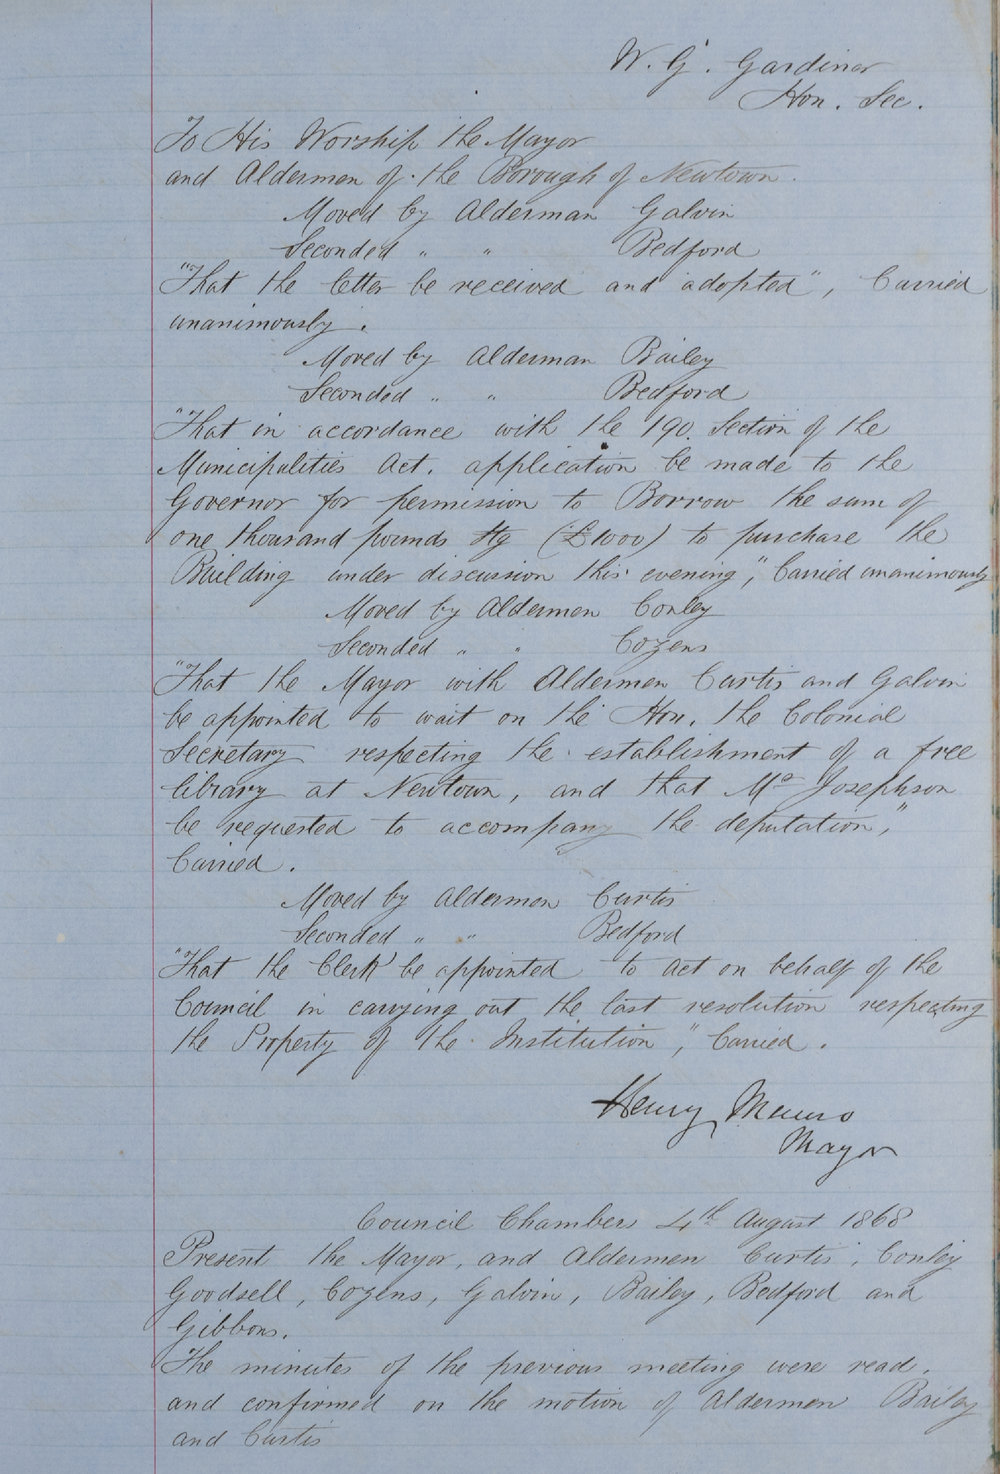 W. G. Gardiner
Hon. Sec.
To His Worship the Mayor
and Aldermen of the Borough of Newtown.
Moved by Alderman Galvin
Seconded " " Bedford
"That the letter be received and adopted", Carried
unanimously.
Moved by Alderman Bailey
Seconded " " Bedford
"That in accordance with the 190. Section of the
Municipalities Act. application be made to the
Governor for permission to Borrow the sum of
one thousand pounds (£1000) to purchase the
Building under discussion this evening", Carried unanimously
Moved by Aldermen Conley
Seconded " " Cozens
"That the Mayor with Aldermen Curtis and Galvin
be appointed to wait on the Hon. the Colonial
Secretary respecting the establishment of a free
library at Newtown, and that Mr Josephson
be requested to accompany the deputation",
Carried.
Moved by Aldermen Curtis
Seconded " " Bedford
"That the Clerk be appointed to act on behalf of the
Council in carrying out the last resolution respecting
the Property of the Institution", Carried.
Henry Munro
Mayor
Council Chambers 4th August 1868
Present the Mayor, and Aldermen Curtis, Conley
Goodsell, Cozens, Galvin, Bailey, Bedford and
Gibbons.
The minutes of the previous meeting were read.
and confirmed on the motion of Aldermen Bailey
and Curtis